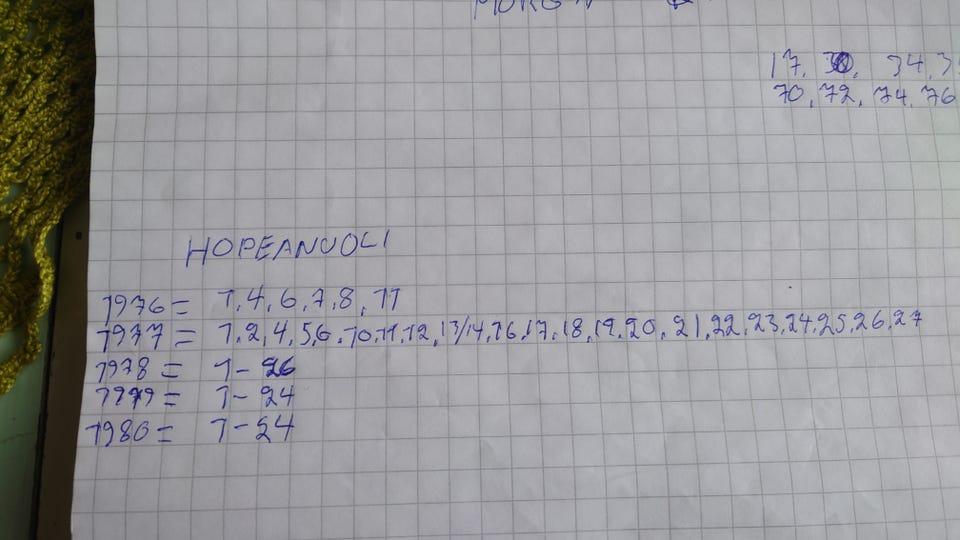 17, 30, 34, 3
70, 72, 74, 76
HOPEANUOLI
1976 = 1, 4, 6, 7, 8, 11
1977 = 1, 2, 4, 5, 6, 10, 11, 12, 13/14, 16, 17, 18, 19, 20, 21, 22, 23, 24, 25, 26, 27
1978 = 1 - 26
1979 = 1 - 24
1980 = 1 - 24